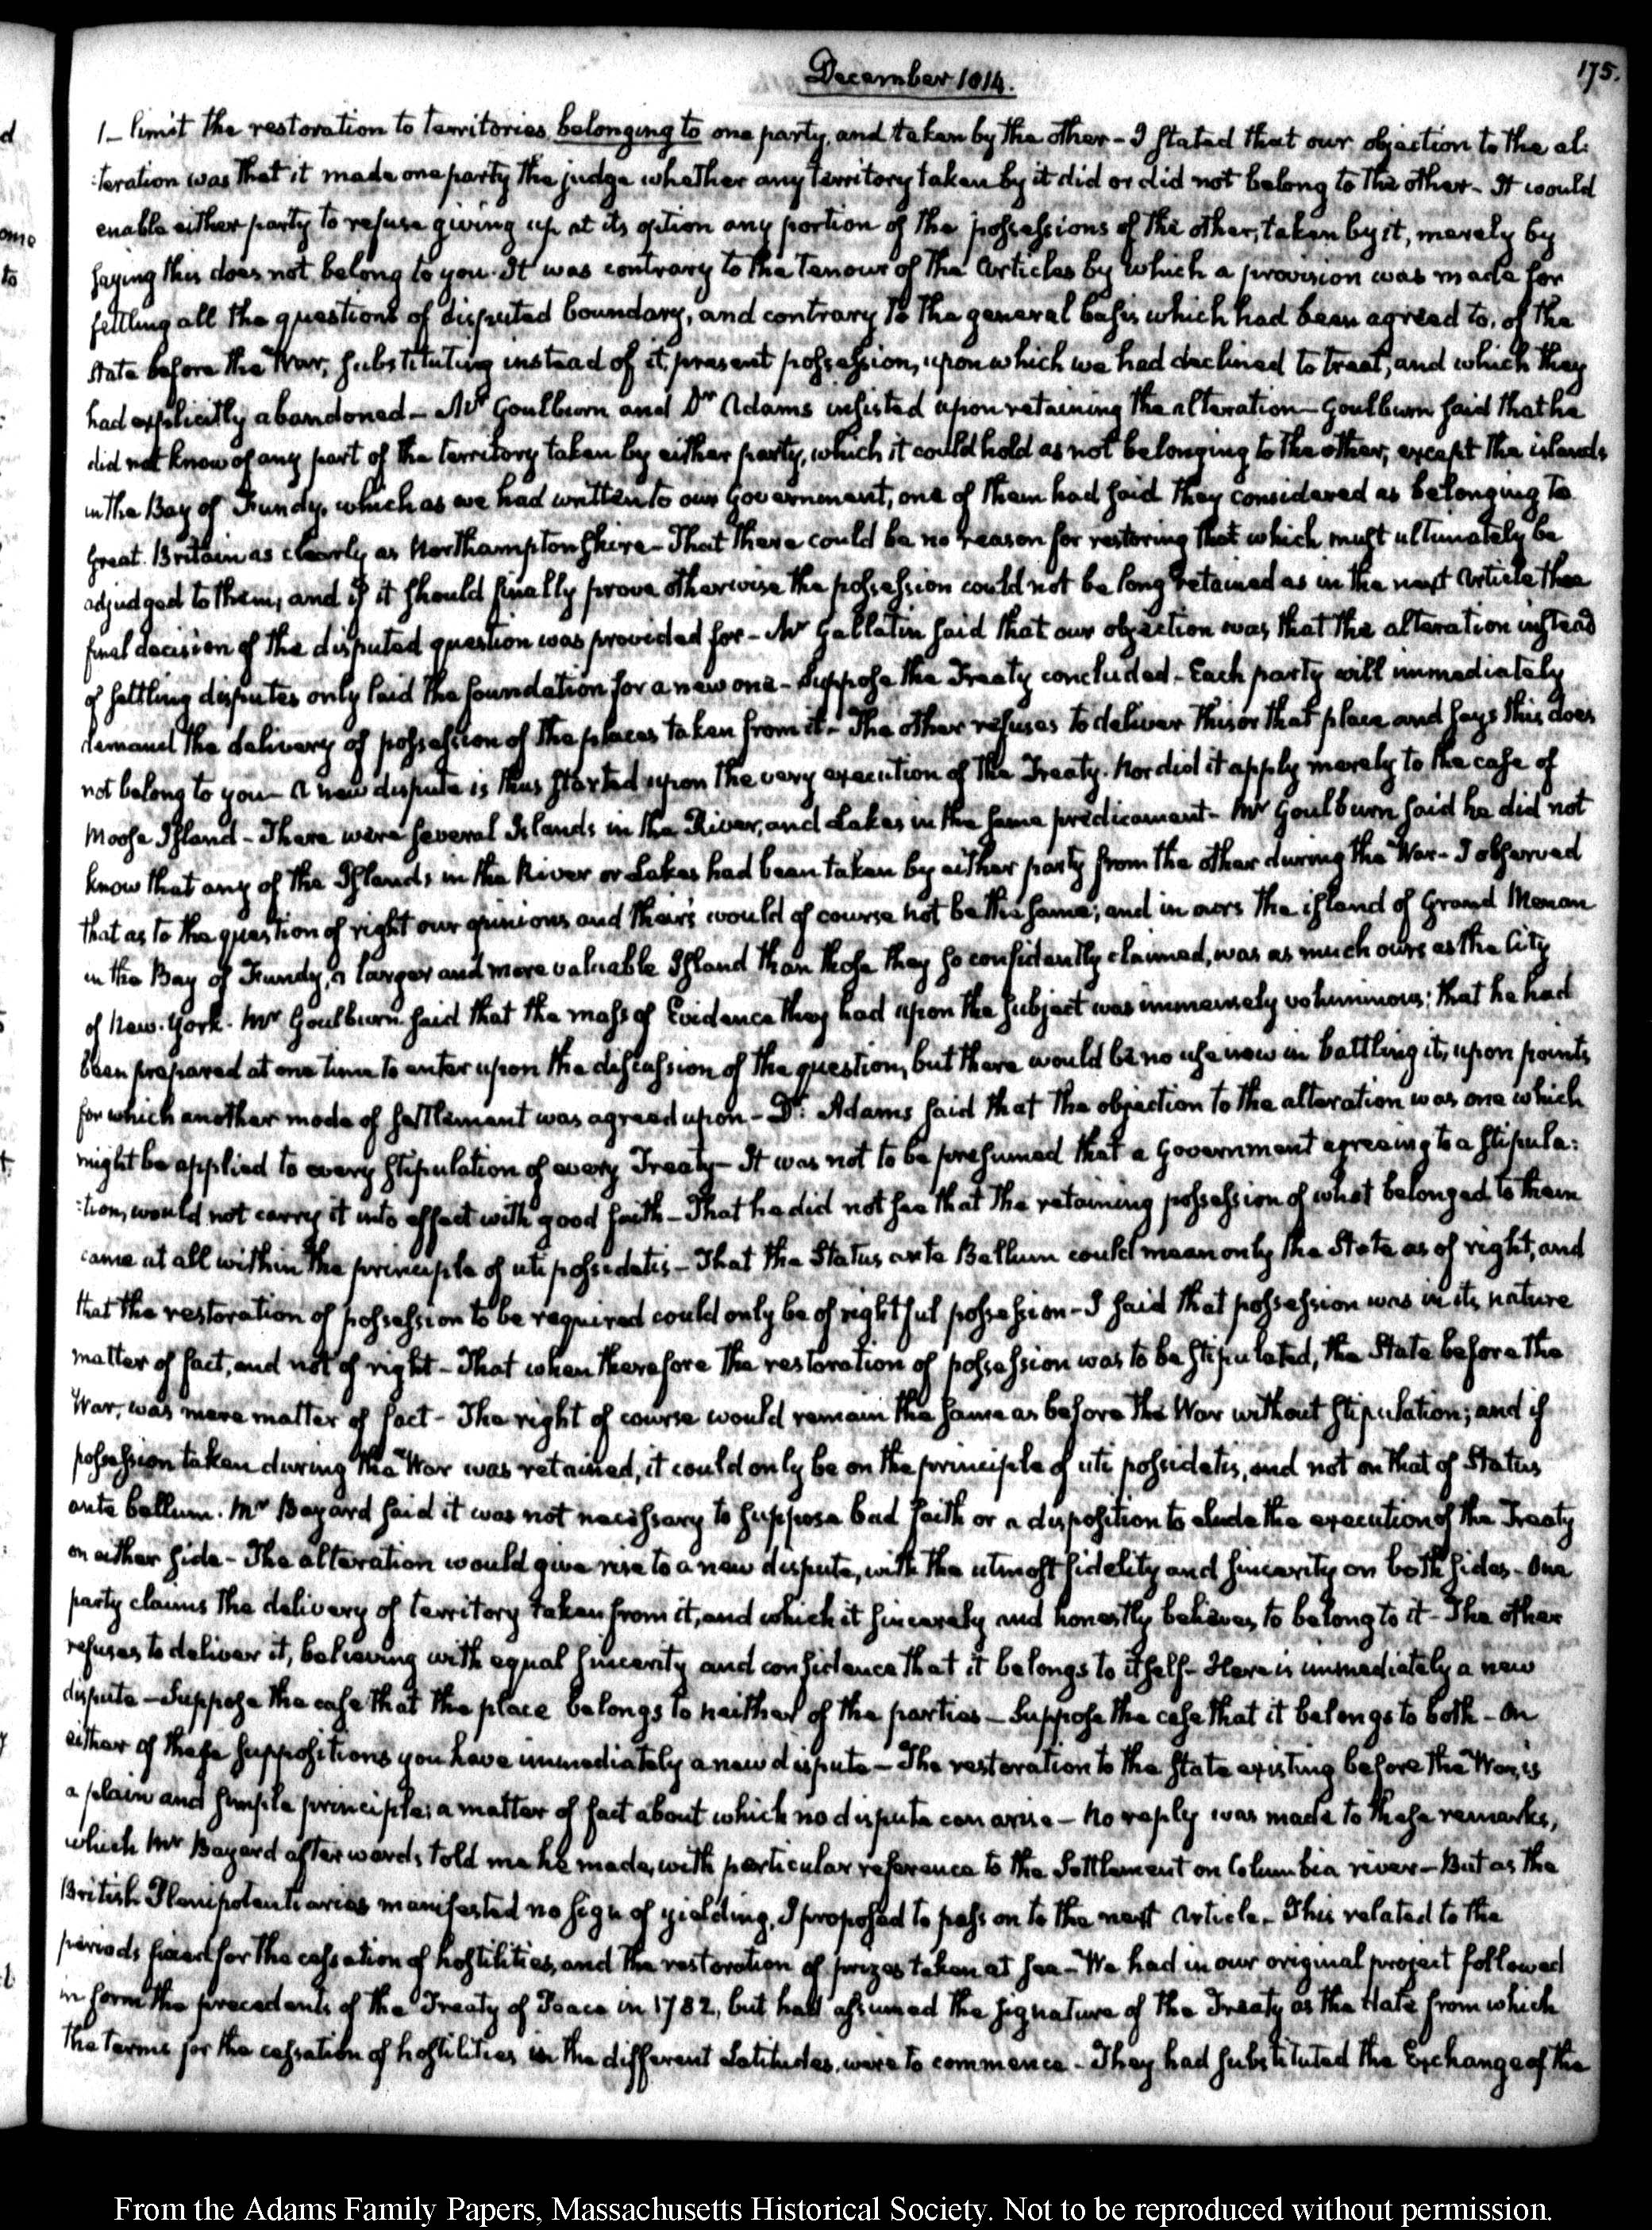 December 1814.
175.
1_ limit the restoration to territories belonging to one party, and taken by the other - I stated that our objection to the al:
:teration was that it made one party the judge whether any territory taken by it did or did not belong to the other - It would
enable either party to refuse giving up at its option any portion of the possessions of the other, taken by it, merely by
saying this does not belong to you. It was contrary to the tenour of the Articles by which a provision was made for
settling all the questions of disputed boundary, and contrary to the general basis which had been agreed to, of the
state before the War, substituting instead of it, present possession, upon which we had declined to treat, and which they
had explicitly abandoned - Mr Goulburn and Dr Adams insisted upon retaining the alteration - Goulburn said that he
did not know of any part of the territory taken by either party, which it could hold as not belonging to the other, except the islands
in the Bay of Fundy, which as we had written to our Government, one of them had said they considered as belonging to
Great Britain as clearly as Northamptonshire - That there could be no reason for restoring that which must ultimately be
adjudged to them, and if it should finally prove otherwise the possession could not be long retained as in the next Article the
final decision of the disputed question was provided for - Mr Gallatin said that our objection was that the alteration instead
of settling disputes only laid the foundation for a new one - Suppose the Treaty concluded - Each party will immediately
demand the delivery of possession of the places taken from it - The other refuses to deliver this or that place and says this does
not belong to you - A new dispute is thus started upon the very execution of the Treaty. Nor did it apply merely to the case of
Moose Island - There were several Islands in the River, and Lakes in the same predicament - Mr Goulburn said he did not
know that any of the Islands in the River or Lakes had been taken by either party from the other during the War - I observed
that as to the question of right our opinions and their's would of course not be the same; and in ours the island of Grand Menan
in the Bay of Fundy, a larger and more valuable Island than those they so confidently claimed, was as much ours as the City
of New-York. Mr Goulburn said that the mass of Evidence they had upon the subject was immensely voluminous; that he had
been prepared at one time to enter upon the discussion of the question, but there would be no use now in battling it, upon points
for which another mode of settlement was agreed upon - Dr. Adams said that the objection to the alteration was one which
might be applied to every stipulation of every Treaty - It was not to be presumed that a Government agreeing to a stipula:
:tion, would not carry it into effect with good faith - That he did not see that the retaining possession of what belonged to them
came at all within the principle of uti possidetis - That the Status ante Bellum could mean only the State as of right, and
that the restoration of possession to be required could only be of rightful possession - I said that possession was in its nature
matter of fact, and not of right - That when therefore the restoration of possession was to be stipulated, the State before the
War, was mere matter of fact - The right of course would remain the same as before the War without stipulation; and if
possession taken during the War was retained, it could only be on the principle of uti possidetis, and not on that of Status
ante bellum. Mr Bayard said it was not necessary to suppose bad faith or a disposition to elude the execution of the Treaty
on either side - The alteration would give rise to a new dispute, with the utmost fidelity and sincerity on both sides - One
party claims the delivery of territory taken from it, and which it sincerely and honestly believes to belong to it - The other
refuses to deliver it, believing with equal sincerity and confidence that it belongs to itself - Here is immediately a new
dispute - Suppose the case that the place belongs to neither of the parties - Suppose the case that it belongs to both - On
either of these suppositions you have immediately a new dispute - The restoration to the state existing before the War, is
a plain and simple principle; a matter of fact about which no dispute can arise - No reply was made to these remarks,
which Mr Bayard afterwards told me he made, with particular reference to the Settlement on Columbia river - But as the
British Plenipotentiaries manifested no sign of yielding, I proposed to pass on to the next Article - This related to the
periods fixed for the cessation of hostilities, and the restoration of prizes taken at sea - We had in our original project followed
in form the precedents of the Treaty of Peace in 1782, but had assumed the signature of the Treaty as the date from which
the terms for the cessation of hostilities in the different Latitudes, were to commence - They had substituted the Exchange of the
From the Adams Family Papers, Massachusetts Historical Society. Not to be reproduced without permission.